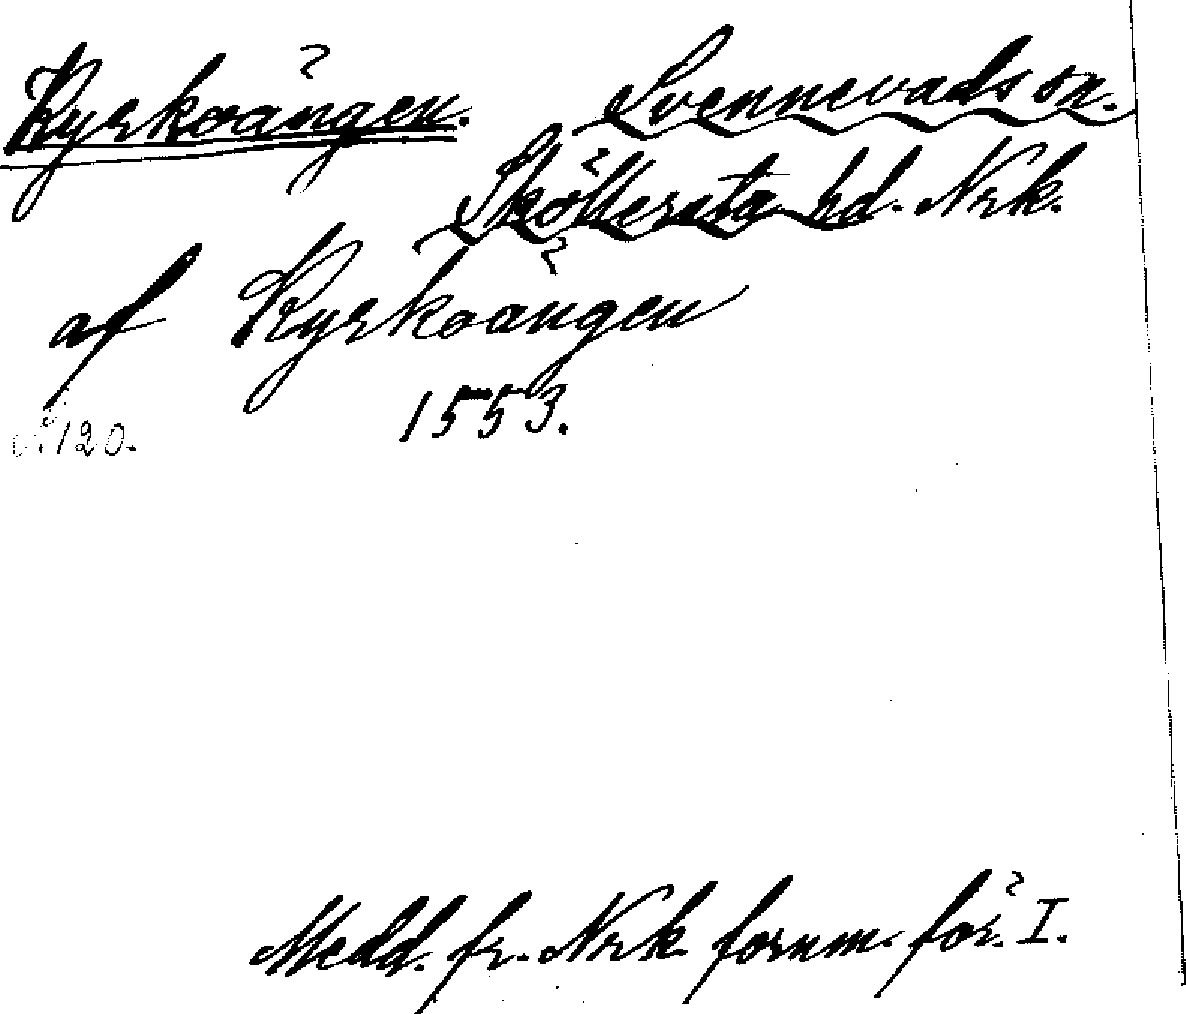 Kyrkoängen. Svennevads sn.
Sköllersta hd. Nrk.
af Kyrkoängen
1553.
№ 120.
Medd. fr. Nrk fornm. för. I.